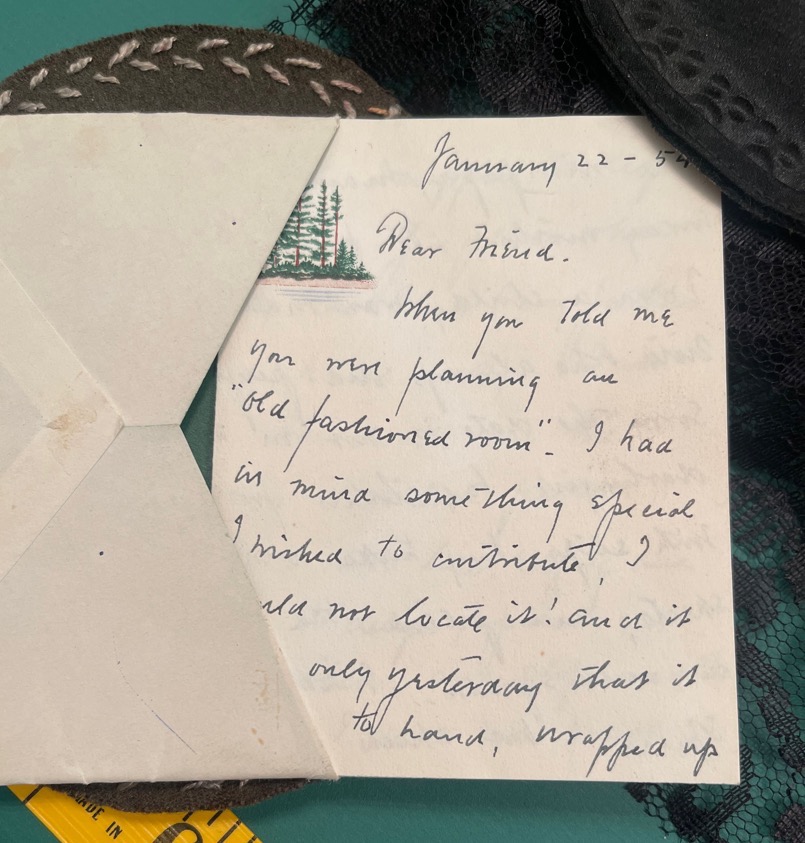 January 22 - 54
Dear Friend.
When you told me
you were planning an
"old fashioned room". I had
in mind something special
I wished to contribute, I
uld not locate it! and it
only yesterday that it
to hand, wrapped up
MADE IN